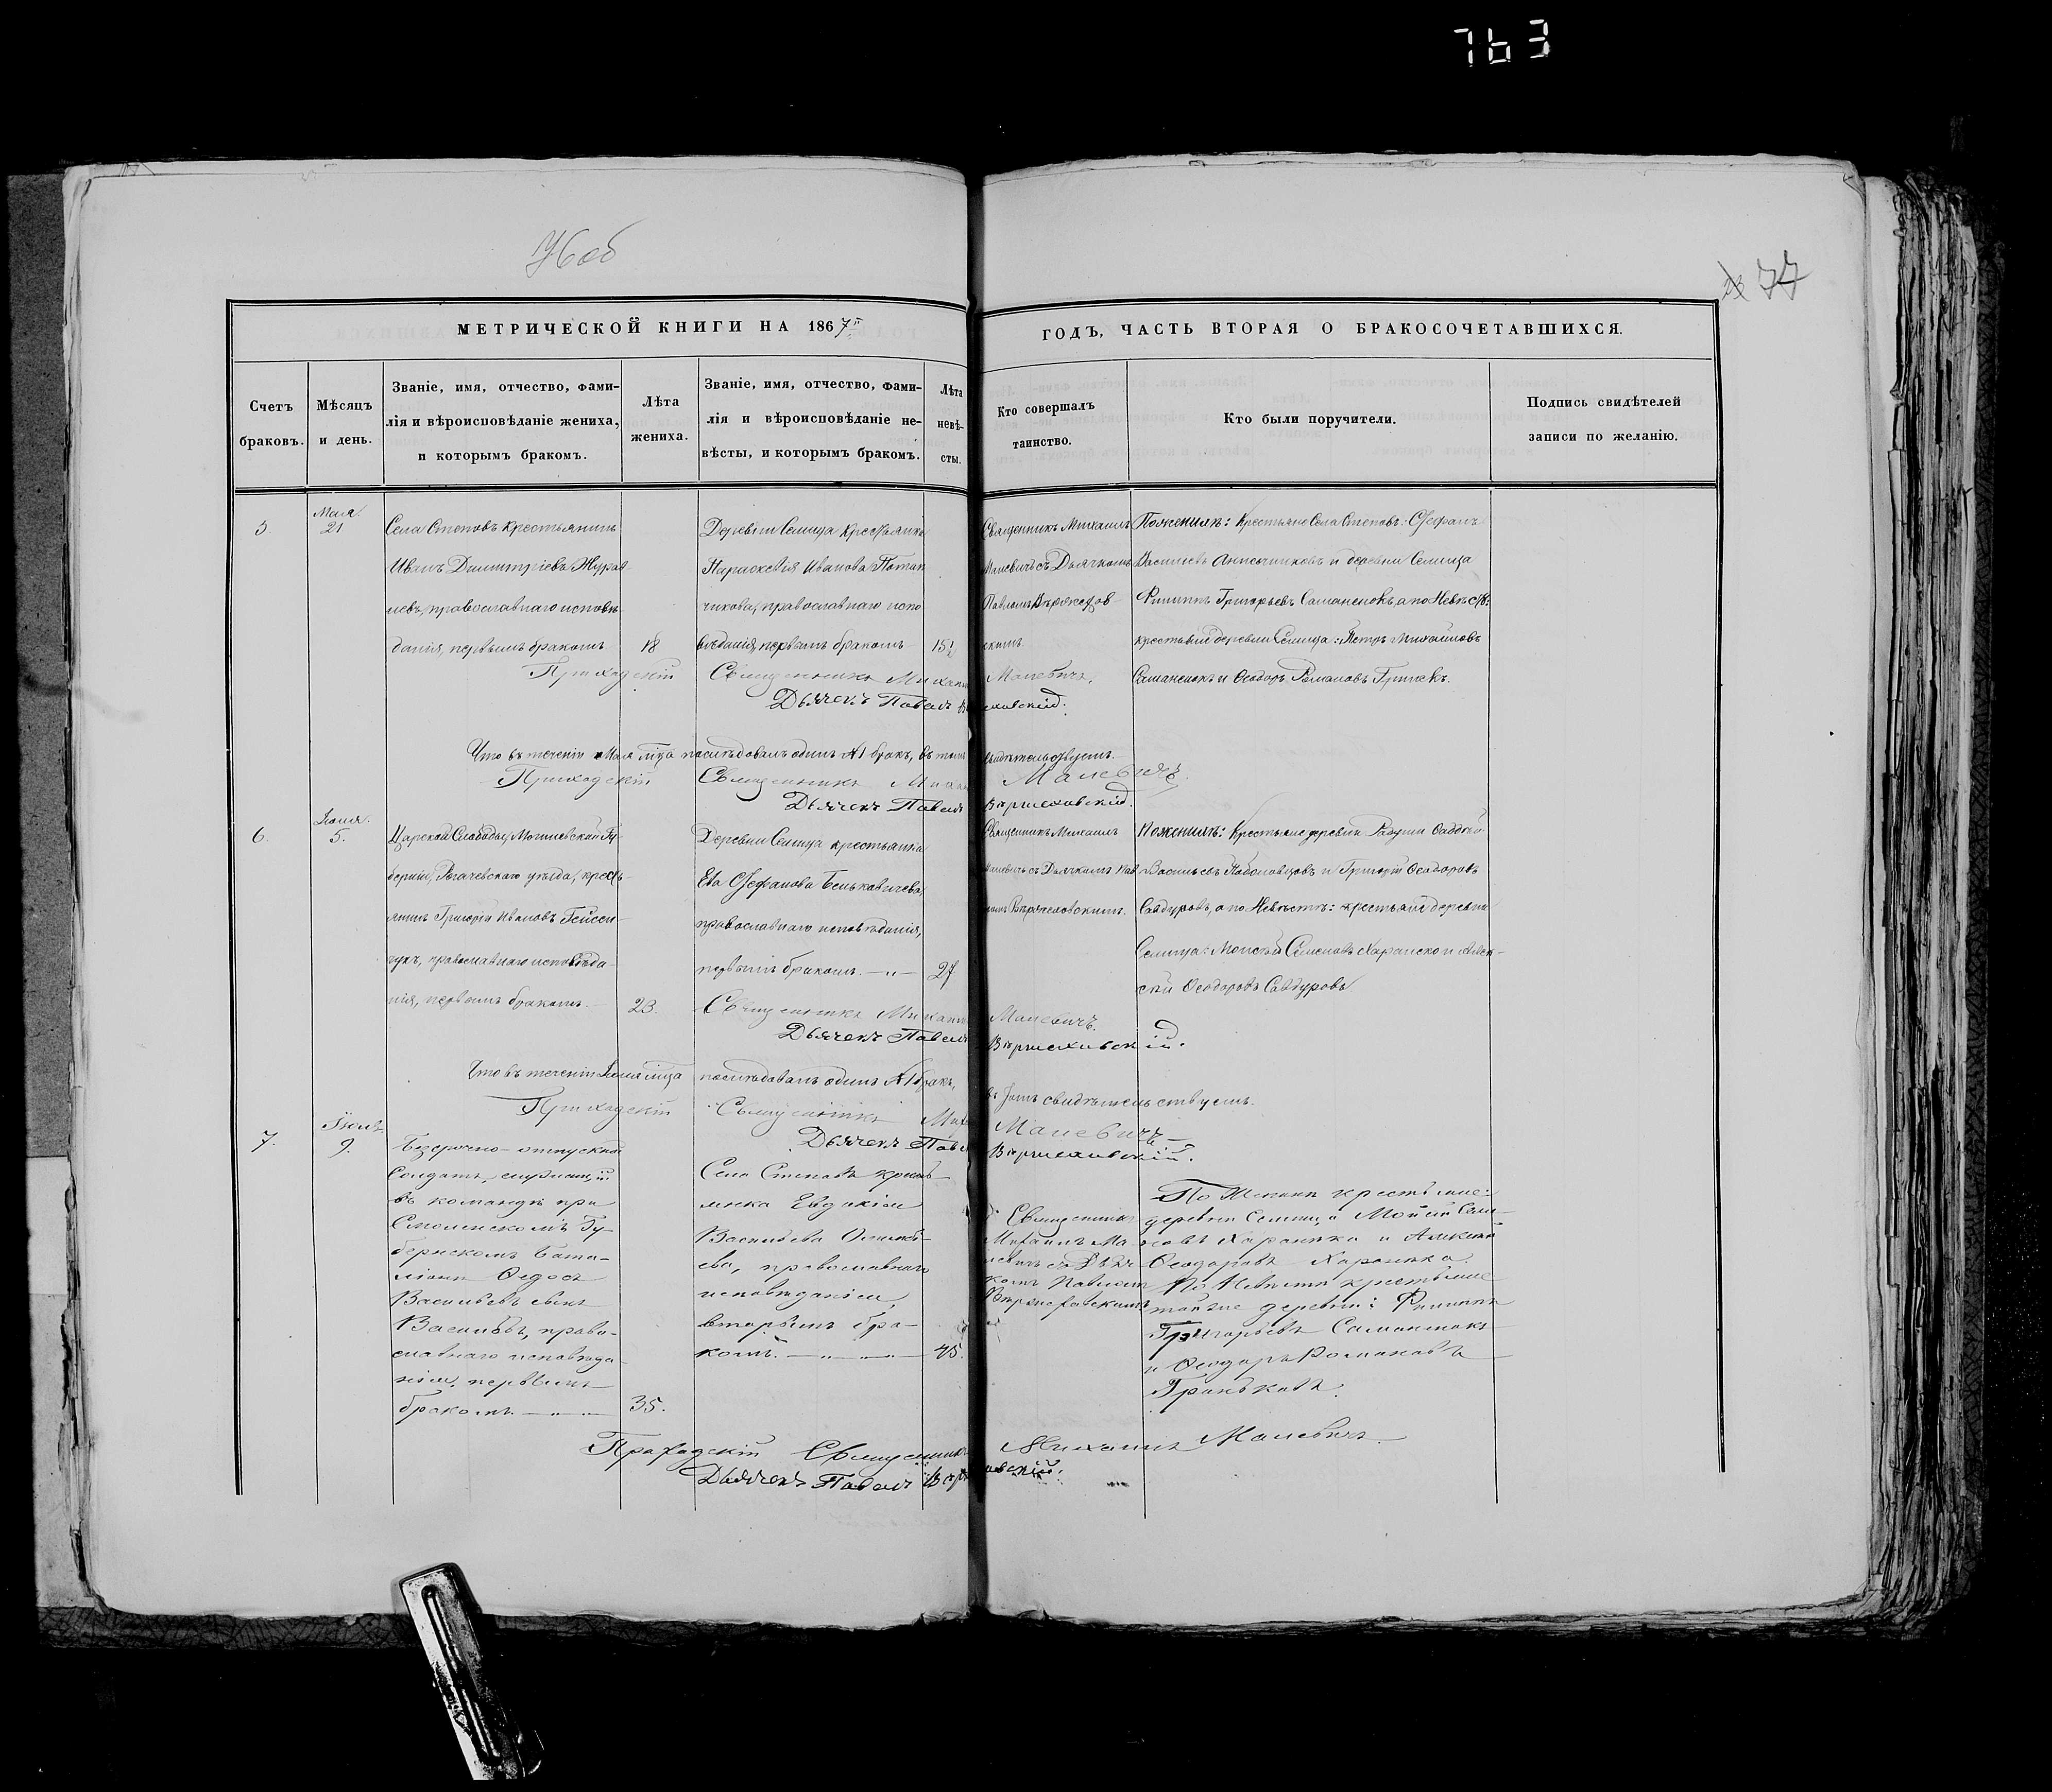 763
77
МЕТРИЧЕСКОЙ КНИГИ НА 1867й
ГОДЪ, ЧАСТЬ ВТОРАЯ О БРАКОСОЧЕТАВШИХСЯ.
Счетъ
браковъ.
Мѣсяцъ
и день.
Званіе, имя, отчество, фами-
лія и вѣроисповѣданіе жениха,
и которымъ бракомъ.
Лѣта
жениха.
Званіе, имя, отчество, фами-
лія и вѣроисповѣданіе не-
вѣсты, и которымъ бракомъ.
Лѣта
невѣ-
сты.
Кто совершалъ
таинство.
Кто были поручители.
Подпись свидѣтелей
записи по желанію.
5.
Мая.
21
Села Степовъ крестьянинъ
Иванъ Димитріевъ Журав-
левъ, православнаго исповѣ
данія, первымъ бракомъ
18
Деревни Селища крестьянка
Параскевія Иванова
православнаго испо
вѣданія, первымъ бракомъ
15½
Священникъ Михаилъ
Малевичъ съ Дьячкомъ
Павломъ
скимъ.
По женихѣ: крестьяне Села Степовъ: Стефанъ
Васильевъ и деревни Селища
Филиппъ Григорьевъ а по Невѣстѣ:
крестьяне деревни Селища: Петръ Михайловъ
и Ѳеодоръ Романовъ
Приходскій Священникъ Михаилъ Малевичъ.
Дьячекъ Павелъ
Что въ теченіи Мая мѣца послѣдовалъ одинъ №1 бракъ, въ томъ свидѣтельствуемъ.
Приходскій Священникъ Малевичъ.
Дьячекъ Павелъ
6.
Іюня.
5.
Царской Слободы, Могилевской Гу-
берніи, Рогачевскаго уѣзда, кресть-
янинъ Григорій Ивановъ
православнаго исповѣда-
нія, первымъ бракомъ.
23.
Деревни Селища крестьянка
Ева Стефанова Беньковичева,
православнаго исповѣданія,
первымъ бракомъ. —„—
27
Священникъ Михаилъ
Малевичъ съ Дьячкомъ Пав
По женихѣ: Крестьяне деревни Ѳаддей
Васильевъ и Григорій Ѳеодоровъ
а по Невѣстѣ: крестьяне деревни
Селища: Моисей Семеновъ и Алек-
сѣй Ѳеодоровъ
Священникъ Михаилъ Малевичъ.
Дьячекъ Павелъ
Что въ теченіи Іюня мѣца послѣдовалъ одинъ №1 бракъ,
въ томъ свидѣтельствуемъ.
Приходскій Священникъ Малевичъ
Дьячекъ Павелъ
7.
Іюля.
9.
Безсрочно-отпускной
Солдатъ, служащій
въ командѣ при
Смоленскомъ Гу-
бернскомъ Бата-
ліонѣ
Васильевъ сынъ
Васильевъ, право-
славнаго исповѣда-
нія, первымъ
бракомъ. —„—
35.
Села Степовъ кресть-
янка Евдокія
Васильева
православнаго
исповѣданія,
вторымъ бра-
комъ. —„—„—
45.
Священникъ
Михаилъ Ма-
левичъ съ Дьяч
комъ Павломъ
По Женихѣ крестьяне
деревни Селищъ Моисей Семе-
новъ и Алексѣй
Ѳеодоровъ
По Невѣстѣ крестьяне
тойже деревни: Филиппъ
Григорьевъ
и Ѳеодоръ Романовъ
Гриньковъ.
Приходскій Священникъ Михаилъ Малевичъ.
Дьячекъ Павелъ